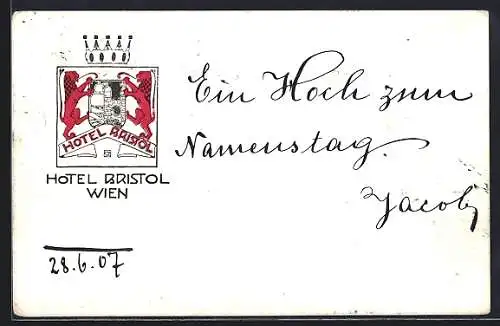 HOTEL BRISTOL
HOTEL BRISTOL
WIEN
Ein Hoch zum
Namenstag.
Jacob
28.6.07